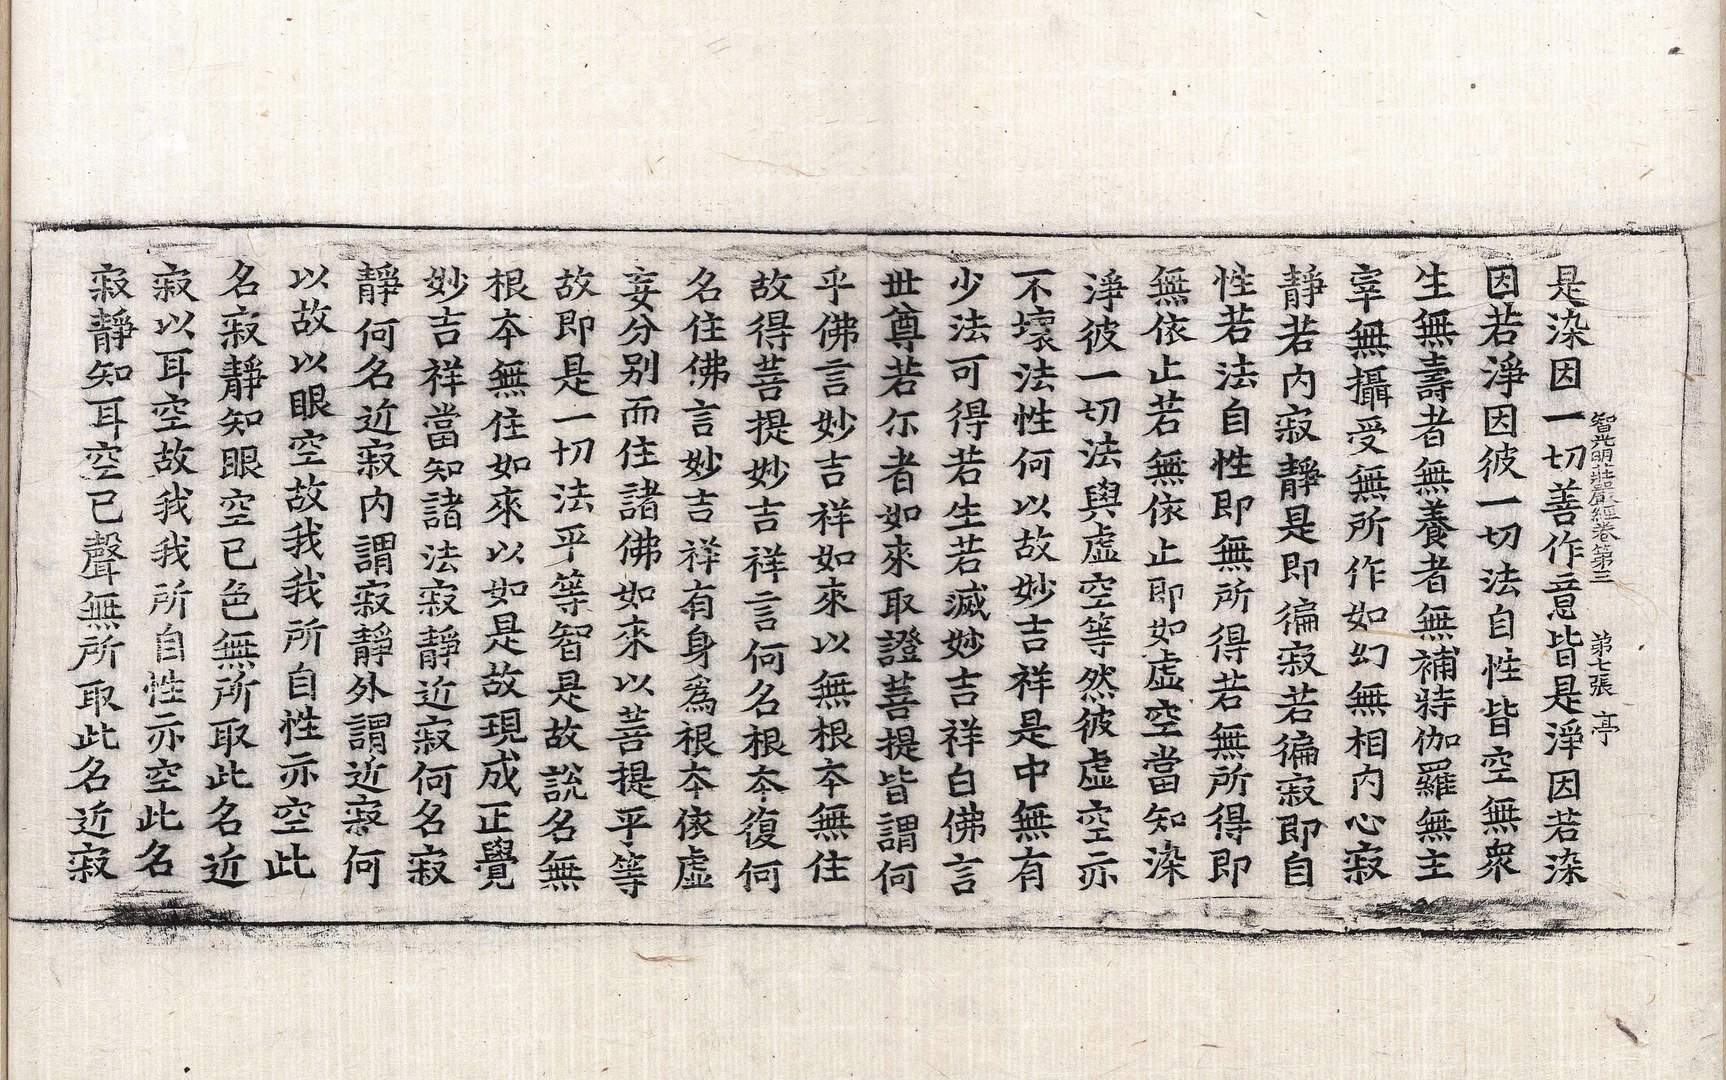 智光明莊嚴經卷第三　第七張　亭
是染因一切善作意皆是淨因若染
因若淨因彼一切法自性皆空無衆
生無壽者無養者無補特伽羅無主
宰無攝受無所作如幻無相内心寂
静若内寂靜是即徧寂若徧寂即自
性若法自性即無所得若無所得即
無依止若無依止即如虛空當知染
淨彼一切法與虛空等然彼虛空亦
不壞法性何以故妙吉祥是中無有
少法可得若生若滅妙吉祥白佛言
世尊若尒者如來取證菩提皆謂何
乎佛言妙吉祥如來以無根本無住
故得菩提妙吉祥言何名根本復何
名住佛言妙吉祥有身爲根本依虛
妄分别而住諸佛如來以菩提平等
故即是一切法平等智是故說名無
根本無住如來以如是故現成正覺
妙吉祥當知諸法寂靜近寂何名寂
靜何名近寂内謂寂靜外謂近寂何
以故以眼空故我我所自性亦空此
名寂靜知眼空已色無所取此名近
寂以耳空故我我所自性亦空此名
寂靜知耳空已聲無所取此名近寂